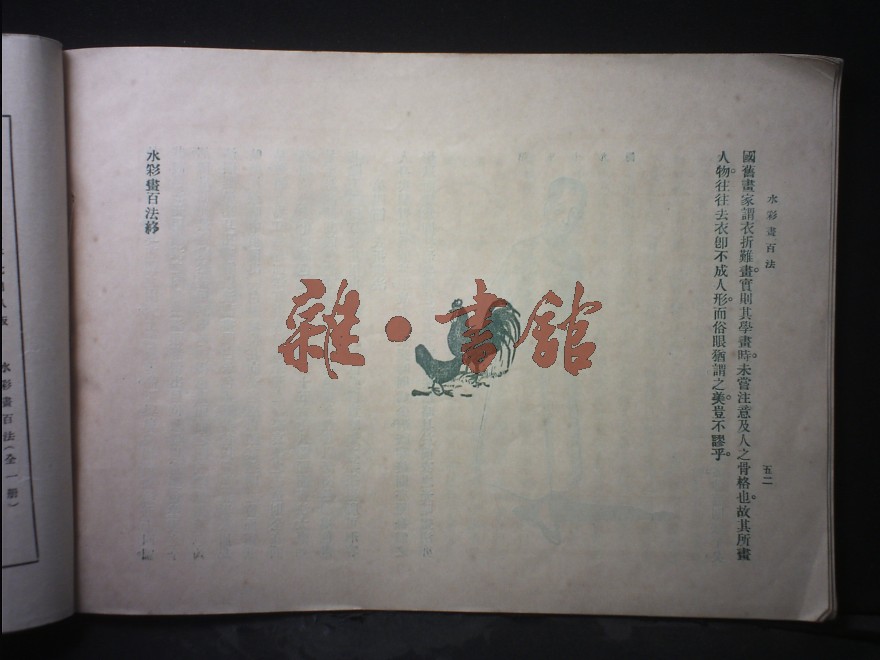 水彩畫百法
五二
國舊畫家謂衣折難畫。實則其學畫時。未嘗注意及人之骨格也。故其所畫
人物。往往去衣卽不成人形。而俗眼猶謂之美。豈不謬乎。
水彩畫百法終
雜·書館
水彩畫百法(全一册)